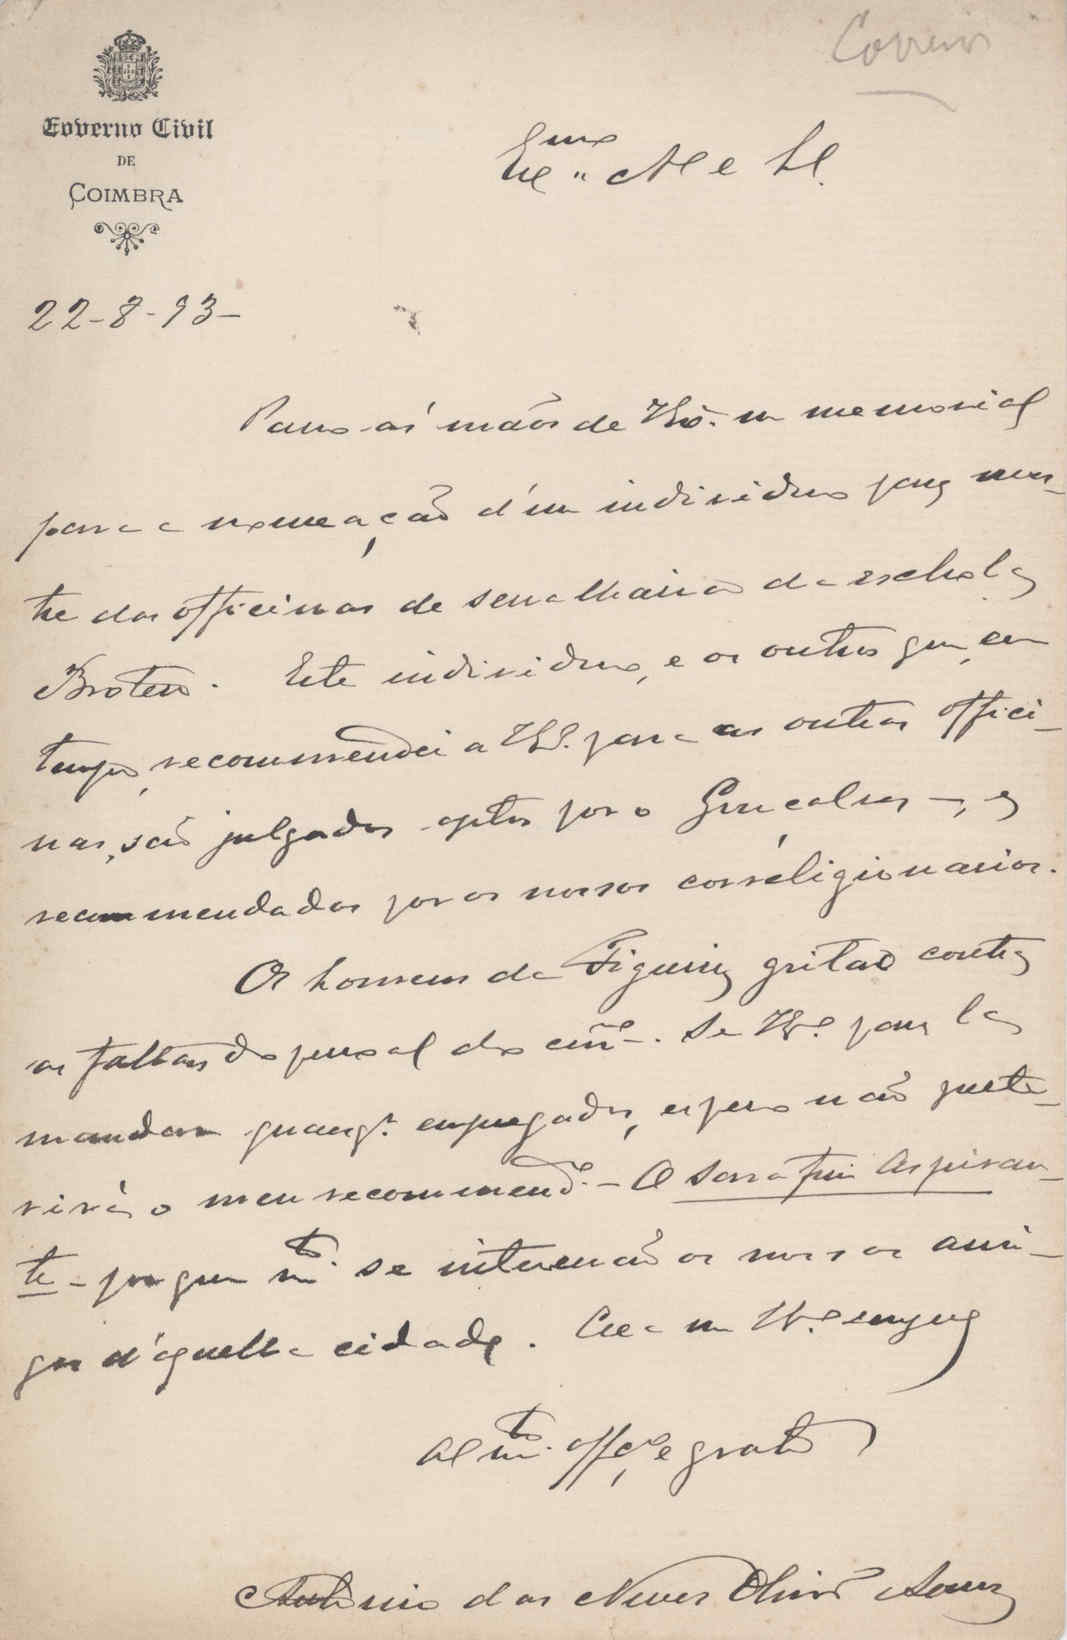 Correios
Governo Civil
DE
COIMBRA
Exmo Am e Sr.
22-8-93-
Passo ás mãos de V. Exª. um memorial
para a nomeação d'um individuo para mes-
tre das officinas de serralharia da eschola
Brotero. Este individuo, e os outros que, em
tempo, recommendei a V. Exª. para as outras offici-
nas, são julgados aptos por o Gonçalves -, e
recommendados por os nossos correligionarios.
Os homens da Figueira gritão contra
as faltas do pessoal do . Se V. Exª para la
mandar quaesqr. empregados, espero não prete-
rirá o meu recommendº. - O Serrafim Aspiran-
te - por quem mto. se interessão os nossos ami-
gos d'aquella cidade. Creia um V. Exª
Am mto. affçº e grato
Antonio das Neves Olivrª Sousa